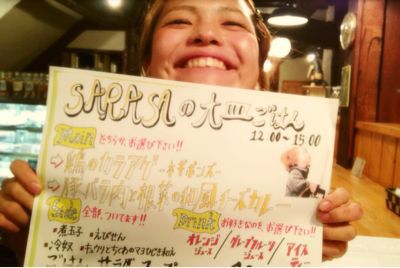 SARASAの大皿ごはん
12:00~15:00
Main どちらか、お選び下さい!!
→鶏のカラアゲ -ネギポンズ-
→豚バラ肉と根菜の和風チーズカレー
全部、ついてます!!
Drink お好きなのを、お選び下さい!!
*煮玉子 *えびせん
オレンジジュース / グレープフルーツジュース / アイスティー
*冷奴 *キュウリとちくわのマヨひじき和え
ごはん サラダ スープ